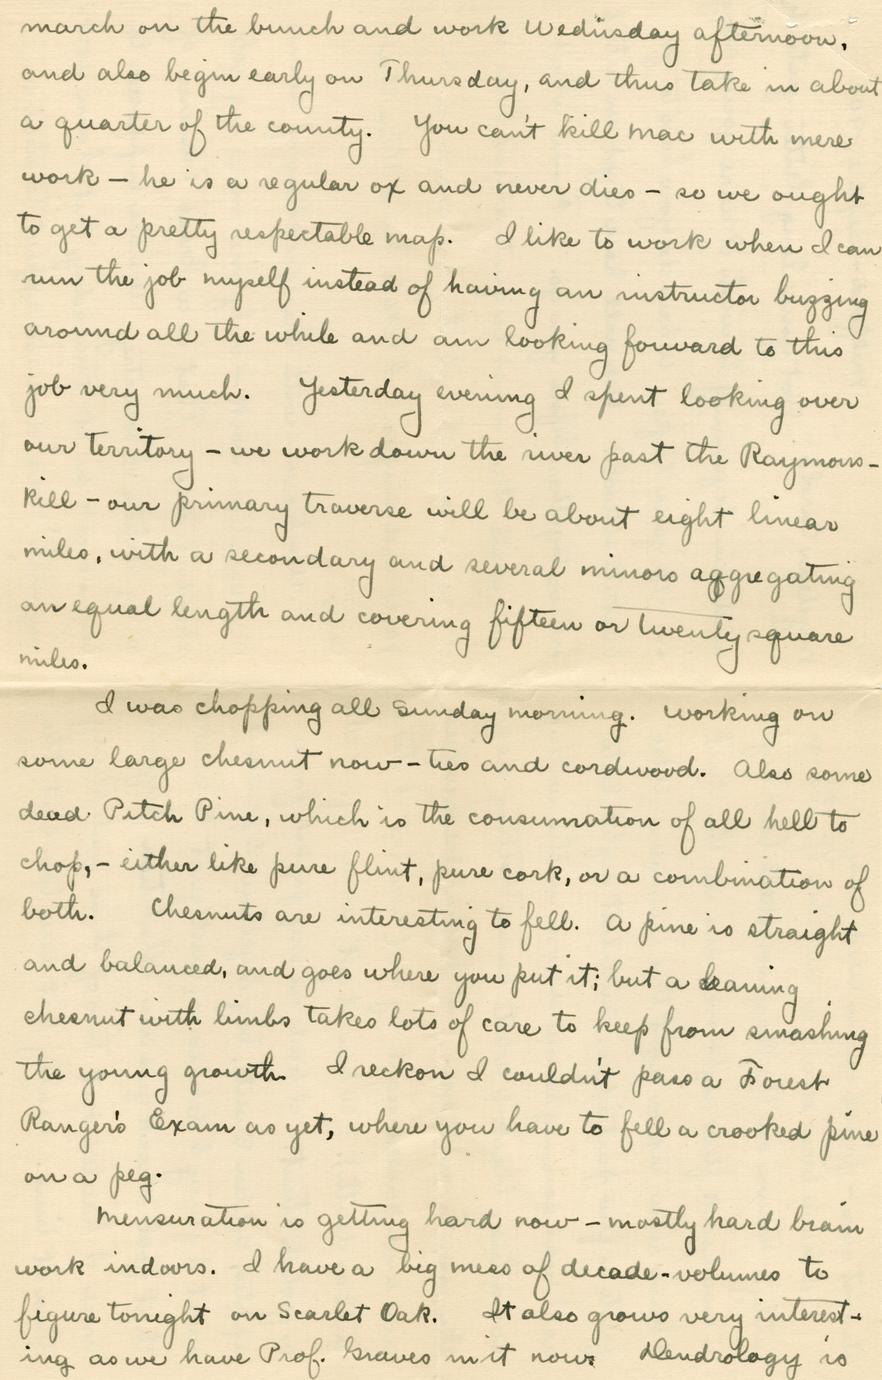 march on the bunch and work Wednsday afternoon,
and also begin early on Thursday, and thus take in about
a quarter of the county. You can't kill Mac with mere
work – he is a regular ox and never dies – so we ought
to get a pretty respectable map. I like to work when I can
run the job myself instead of having an instructor buzzing
around all the while and am looking forward to this
job very much. Yesterday evening I spent looking over
our territory – we work down the river past the Raymons-
kill – our primary traverse will be about eight linear
miles, with a secondary and several minors aggregating
an equal length and covering fifteen or twenty square
miles.
I was chopping all Sunday morning. Working on
some large chesnut now – ties and cordwood. Also some
dead Pitch Pine, which is the consumation of all hell to
chop, – either like pure flint, pure cork, or a combination of
both. Chesnuts are interesting to fell. A pine is straight
and balanced, and goes where you put it; but a leaning
chesnut with limbs takes lots of care to keep from smashing
the young growth. I reckon I couldn't pass a Forest
Ranger's Exam as yet, where you have to fell a crooked pine
on a peg.
Mensuration is getting hard now – mostly hard brain
work indoors. I have a big mess of decade-volumes to
figure tonight on Scarlet Oak. It also grows very interest-
ing as we have Prof. Graves in it now. Dendrology is